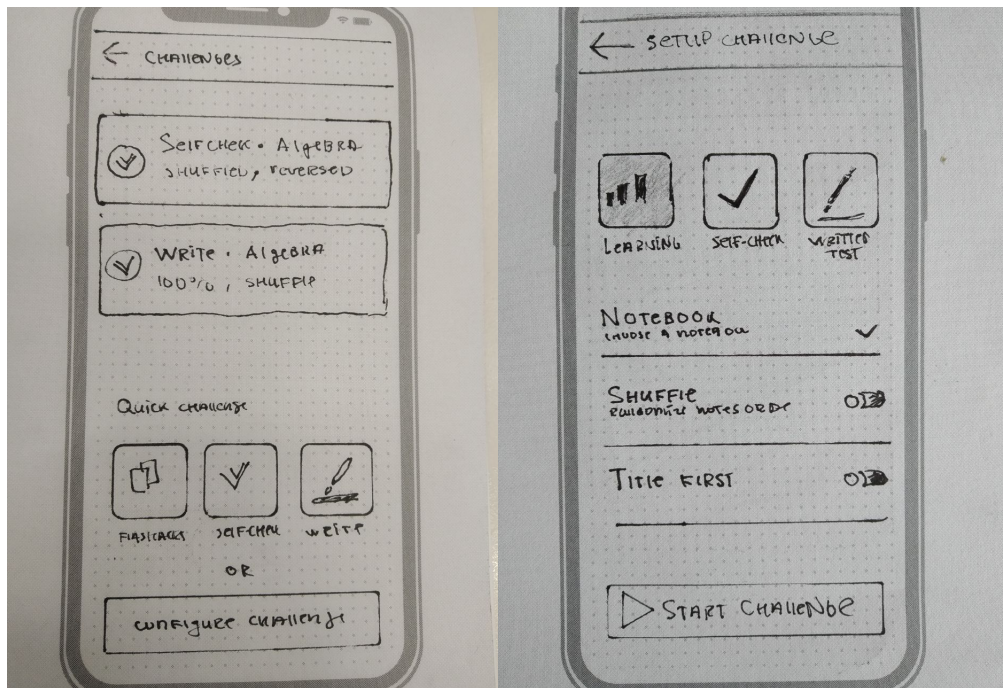 ← CHAllENGES
SElFCHEK • AlgEBRA
SHUFFlED, REVERSED
WRITE • AlgEBRA
100%, SHUFFlE
QUICK CHALLENGE
SElF-CHEK
WRITE
OR
CONFIGURE CHAllENGE
← SETUP CHAllENGE
LEARNING
SElF-CHECK
WRITTEN
TEST
NOTEBOOK
CHOOSE A NOTEBOOK
SHUFFlE
RANDOMIZE NOTES ORDER
TITlE FIRST
START CHAllENGE